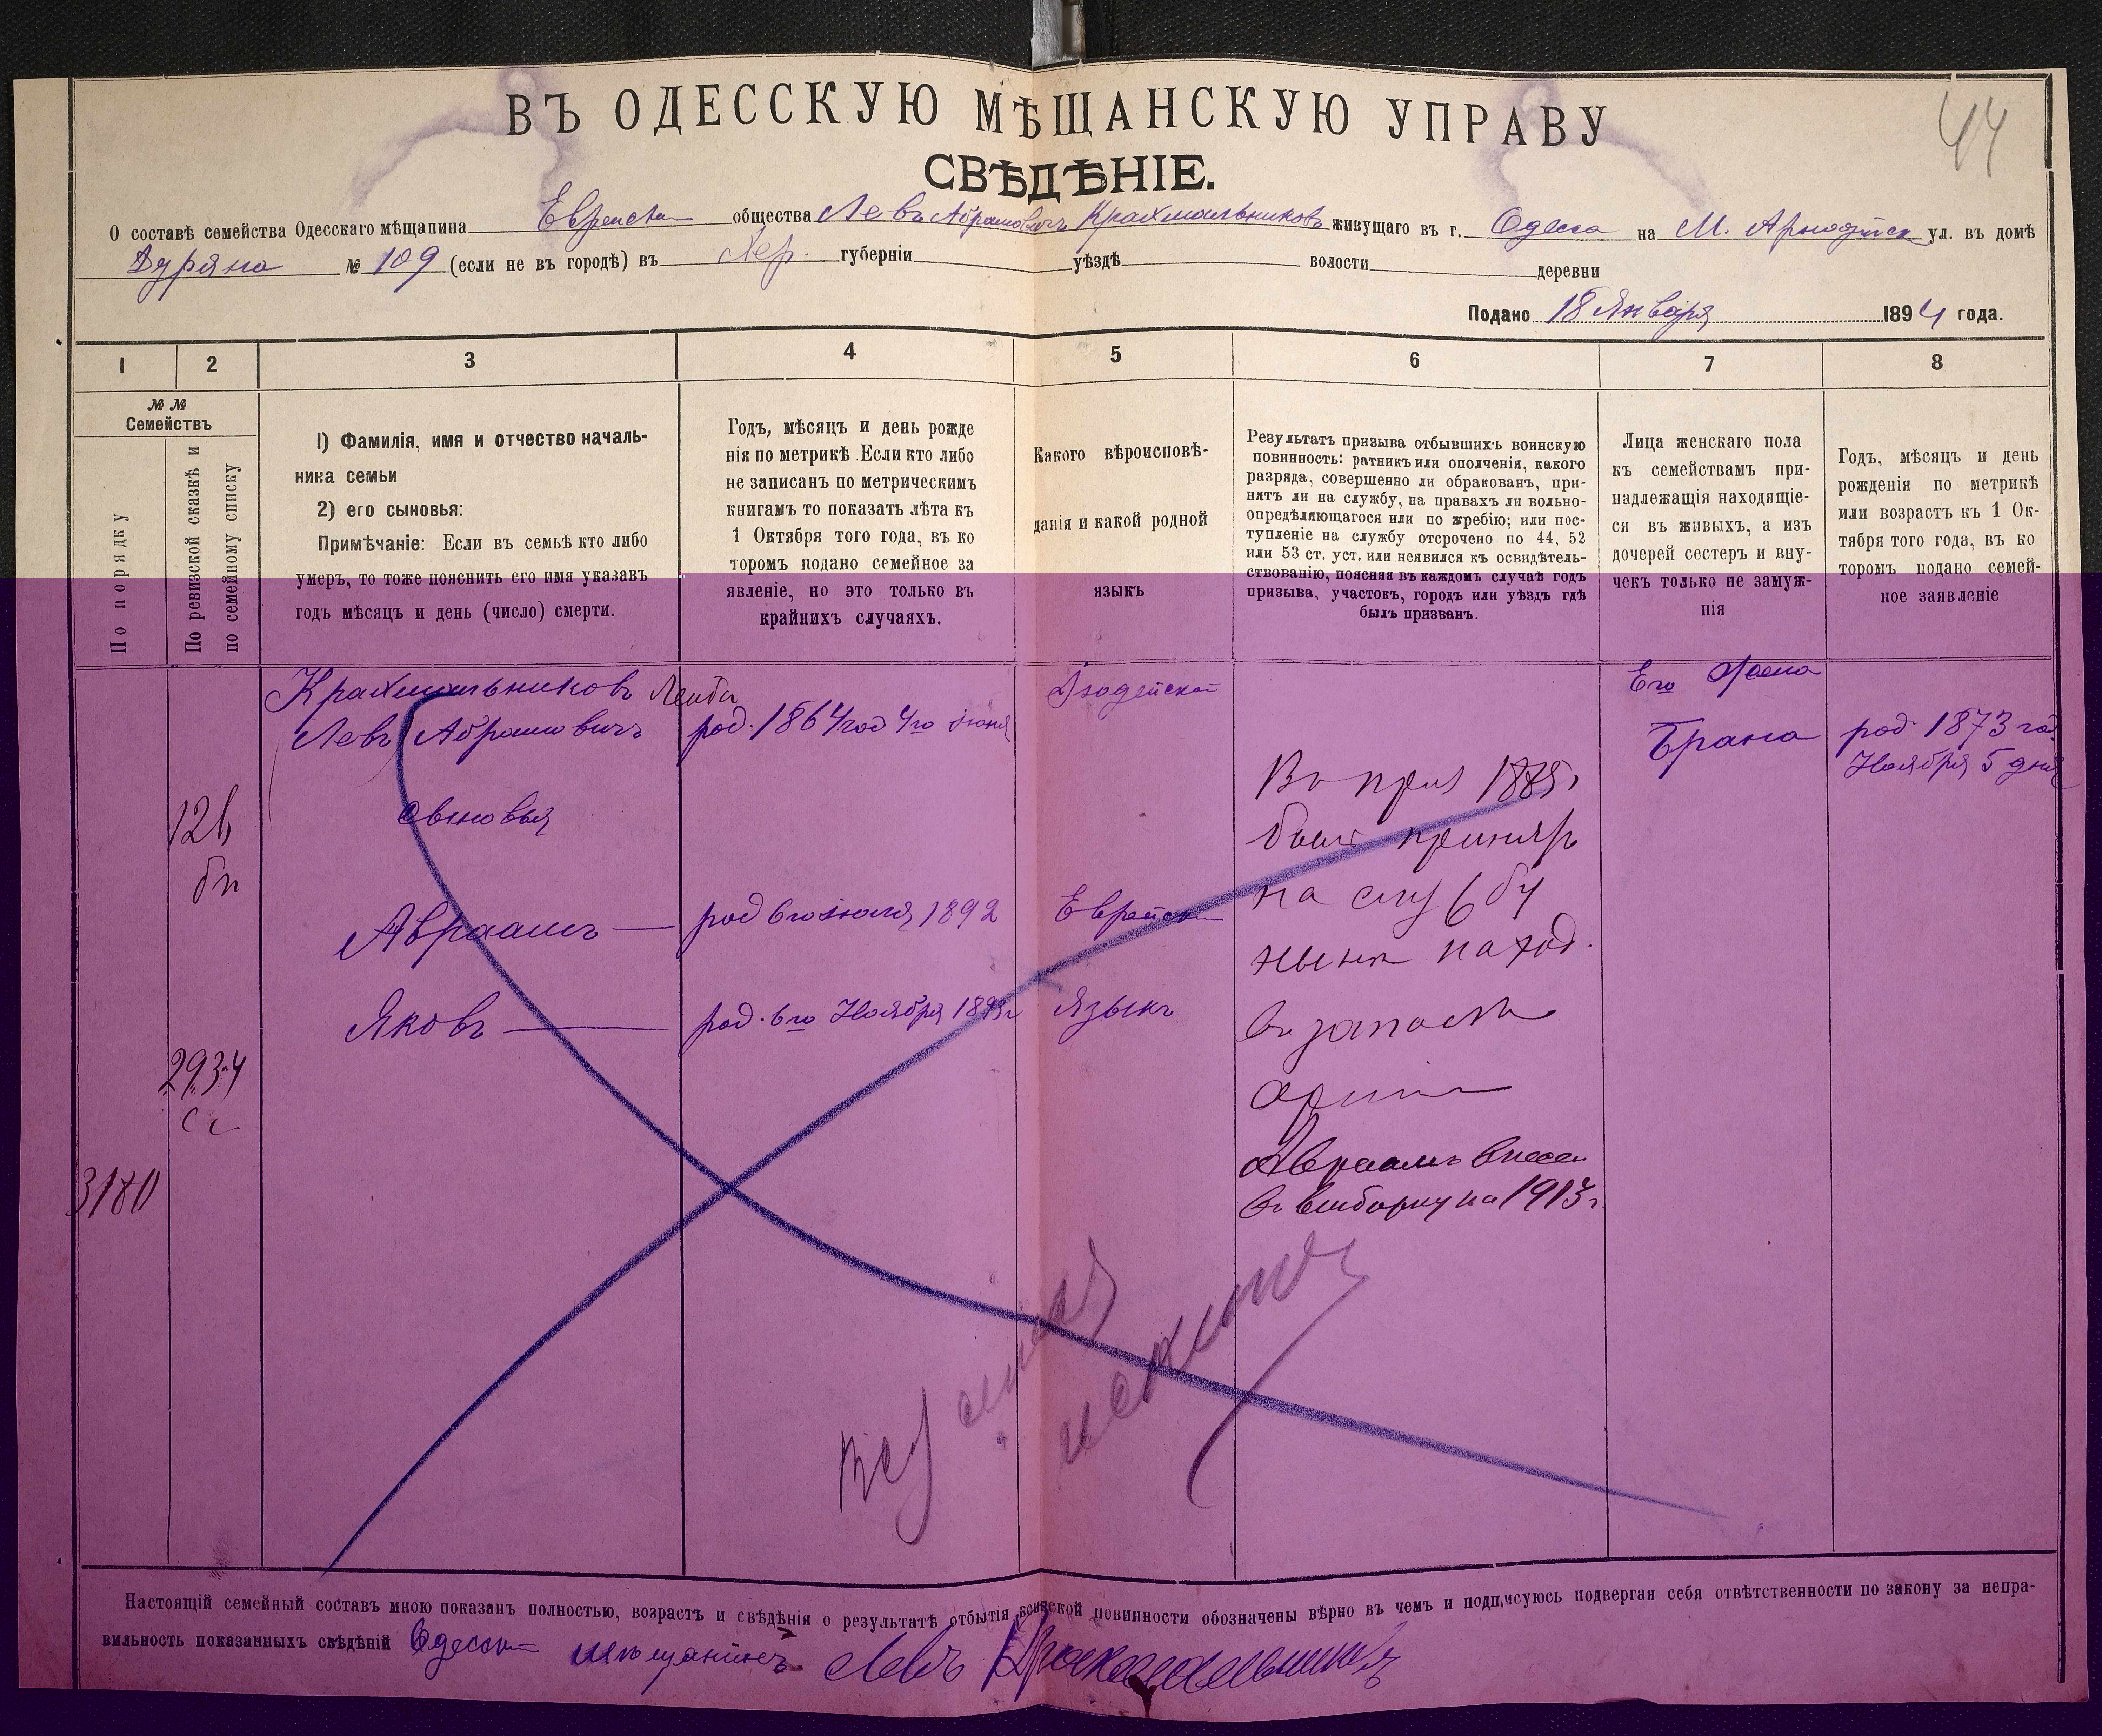 44
ВЪ ОДЕССКУЮ МѢЩАНСКУЮ УПРАВУ
СВѢДѢНІЕ.
О составѣ семейства Одесскаго мѣщанина Еврейска общества Левъ Абрамовичъ Крахмальниковъ живущаго въ г. Одесса на М. Арнаутск ул. въ домѣ
Дуряна № 109 (если не въ городѣ) въ Хер. губерніи уѣздѣ волости деревни
Подано 18 Января 1894 года.
1 2 3 4 5 6 7 8
№ № Семействъ
По порядку
По ревизской сказкѣ и
по семейному списку
1) Фамилія, имя и отчество началь-
ника семьи
2) его сыновья:
Примѣчаніе: Если въ семьѣ кто либо
умеръ, то тоже пояснить его имя указавъ
годъ мѣсяцъ и день (число) смерти.
Годъ, мѣсяцъ и день рожде
нія по метрикѣ. Если кто либо
не записанъ по метрическимъ
книгамъ то показать лѣта къ
1 Октября того года, въ ко
торомъ подано семейное за
явленіе, но это только въ
крайнихъ случаяхъ.
Какого вѣроисповѣ-
данія и какой родной
языкъ
Результатъ призыва отбывшихъ воинскую
повинность: ратникъ или ополченія, какого
разряда, совершенно ли обракованъ, при-
нятъ ли на службу, на правахъ ли вольно-
опредѣляющагося или по жребію; или пос-
тупленіе на службу отсрочено по 44, 52
или 53 ст. уст. или неявился къ освидѣтель-
ствованію, поясняя въ каждомъ случаѣ годъ
призыва, участокъ, городъ или уѣздъ гдѣ
былъ призванъ.
Лица женскаго пола
къ семействамъ при-
надлежащія находящіе-
ся въ живыхъ, а изъ
дочерей сестеръ и вну-
чекъ только не замуж-
нія
Годъ, мѣсяцъ и день
рожденія по метрикѣ
или возрастъ къ 1 Ок-
тября того года, въ ко
торомъ подано семей-
ное заявленіе
Крахмальниковъ Лейба
Левъ Абрамовичъ
род. 1864 год 4го Іюня
Іюдейской
Его Жена
Брана
род 1873 год
Ноября 5 дня
сыновья
Авраамъ — род 6го Іюля 1892
Еврейски
Яковъ — род. 6го Ноября 1893 г
Языкъ
3180
2934
1885 г
былъ принятъ
на службу
нынѣ наход.
въ запасѣ
арміи
Авраамъ внесен
въ выборку на 1913 г.
Настоящій семейный составъ мною показанъ полностью, возрастъ и свѣдѣнія о результатѣ отбытія воинской повинности обозначены вѣрно въ чемъ и подписуюсь подвергая себя отвѣтственности по закону за непра-
вильность показанныхъ свѣдѣній Одесскій мѣщанинъ Левъ Крахмальниковъ